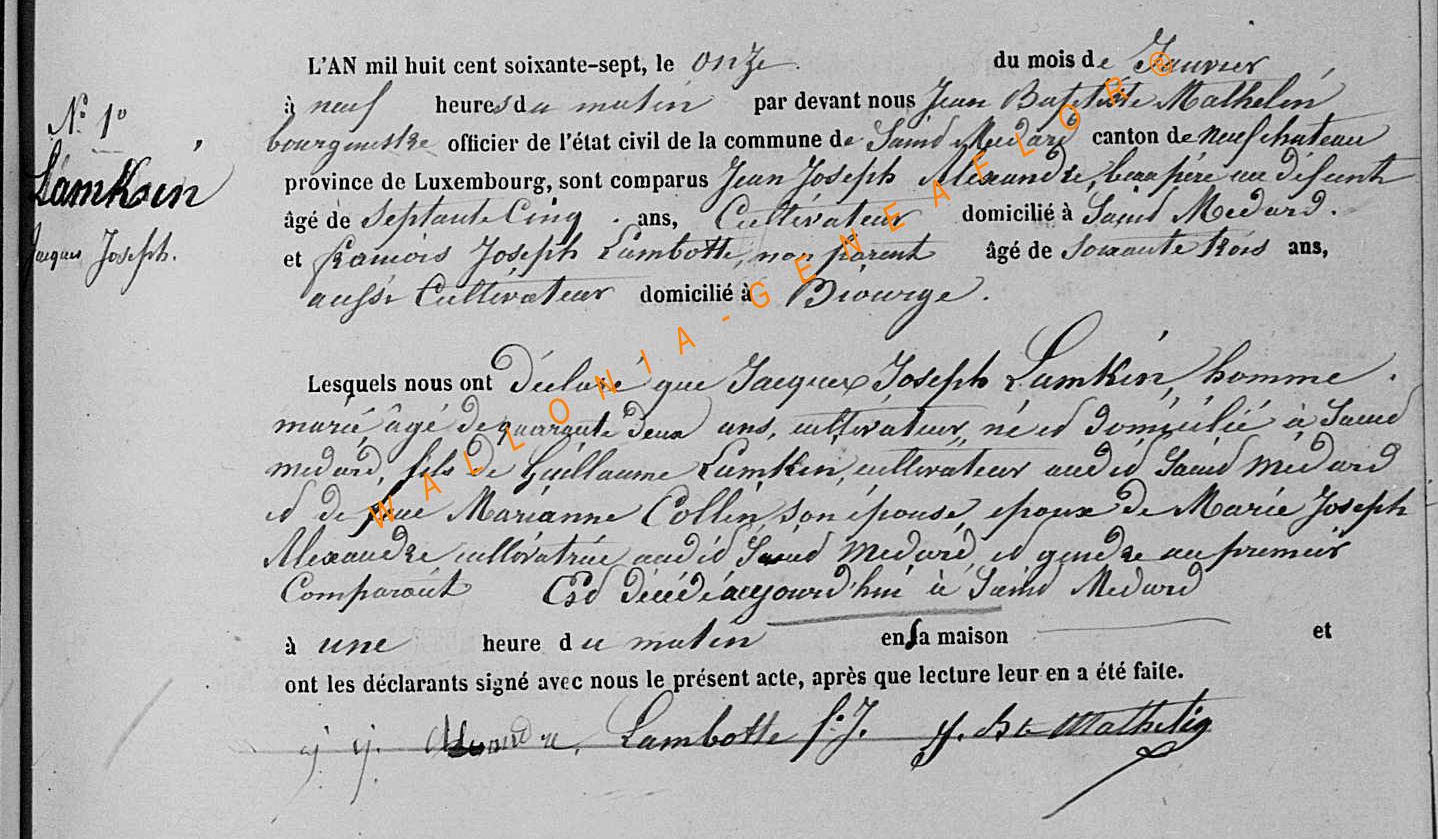 L'AN mil huit cent soixante-sept, le onze. du mois de Janvier
à neuf heures du matin par devant nous Jean Baptiste Mathelin
N° 1°
bourgmestre officier de l'état civil de la commune de Saind Medard canton de neufchateau
Lamkin
province de Luxembourg, sont comparus Jean Joseph Alexandre, beaupère au défunt
âgé de Septante Cinq . ans, Cultivateur domicilié à Saind Medard.
Jacques Joseph.
et francois Joseph Lambotte, non parent âgé de soixante trois ans,
aussi Cultivateur domicilié à Biourge.
Lesquels nous ont déclaré que Jacques Joseph Lamkin, homme
marié âgé de quarante deux ans, cultivateur, né et domicilié à Saind
medard, fils de Guillaume Lamkin, cultivateur audid Saind medard
et de feue Marianne Collin, son épouse, epoux de Marie Joseph
Alexandre cultivatrice audid Saind Medard, et gendre au premier
Comparant Est décédé aujourd'hui à Saind Medard
à une heure du matin en sa maison et
ont les déclarants signé avec nous le présent acte, après que lecture leur en a été faite.
j. j. Alexandre, Lambotte f.J. J. Bte Mathelin
WALLONIA-GENEAELOR®